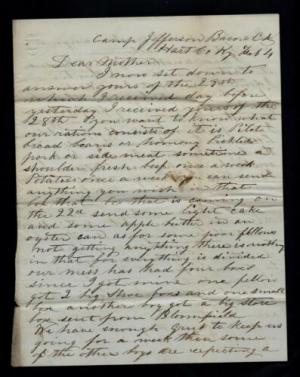 Camp Jefferson Bacon Ck
Hart Co Ky Feb 4
Dear Mother
I now set down to
answer yours of the 29th
which I received day before
yesterday I received yours of the
28th you want to know what
our rations consists of it is Pilot
bread beans or hominy Pickled
pork or side meat sometimes a
shoulder fresh beef once a week
Potatoes once a week you can send
anything you wish in that
box that is coming on
the 22d send some light cake
and some apple butter in an
oyster can as for some poor fellows
not getting anything there is nothing
in that for everything is divided
our mess has had four boxes
since I got mine one fellow
got 2 big shoe boxes and one small
box another boy got a big store
box sent from Bloomfield
We have enough grub to keep us
going for a week then some
of the other boys are expecting a